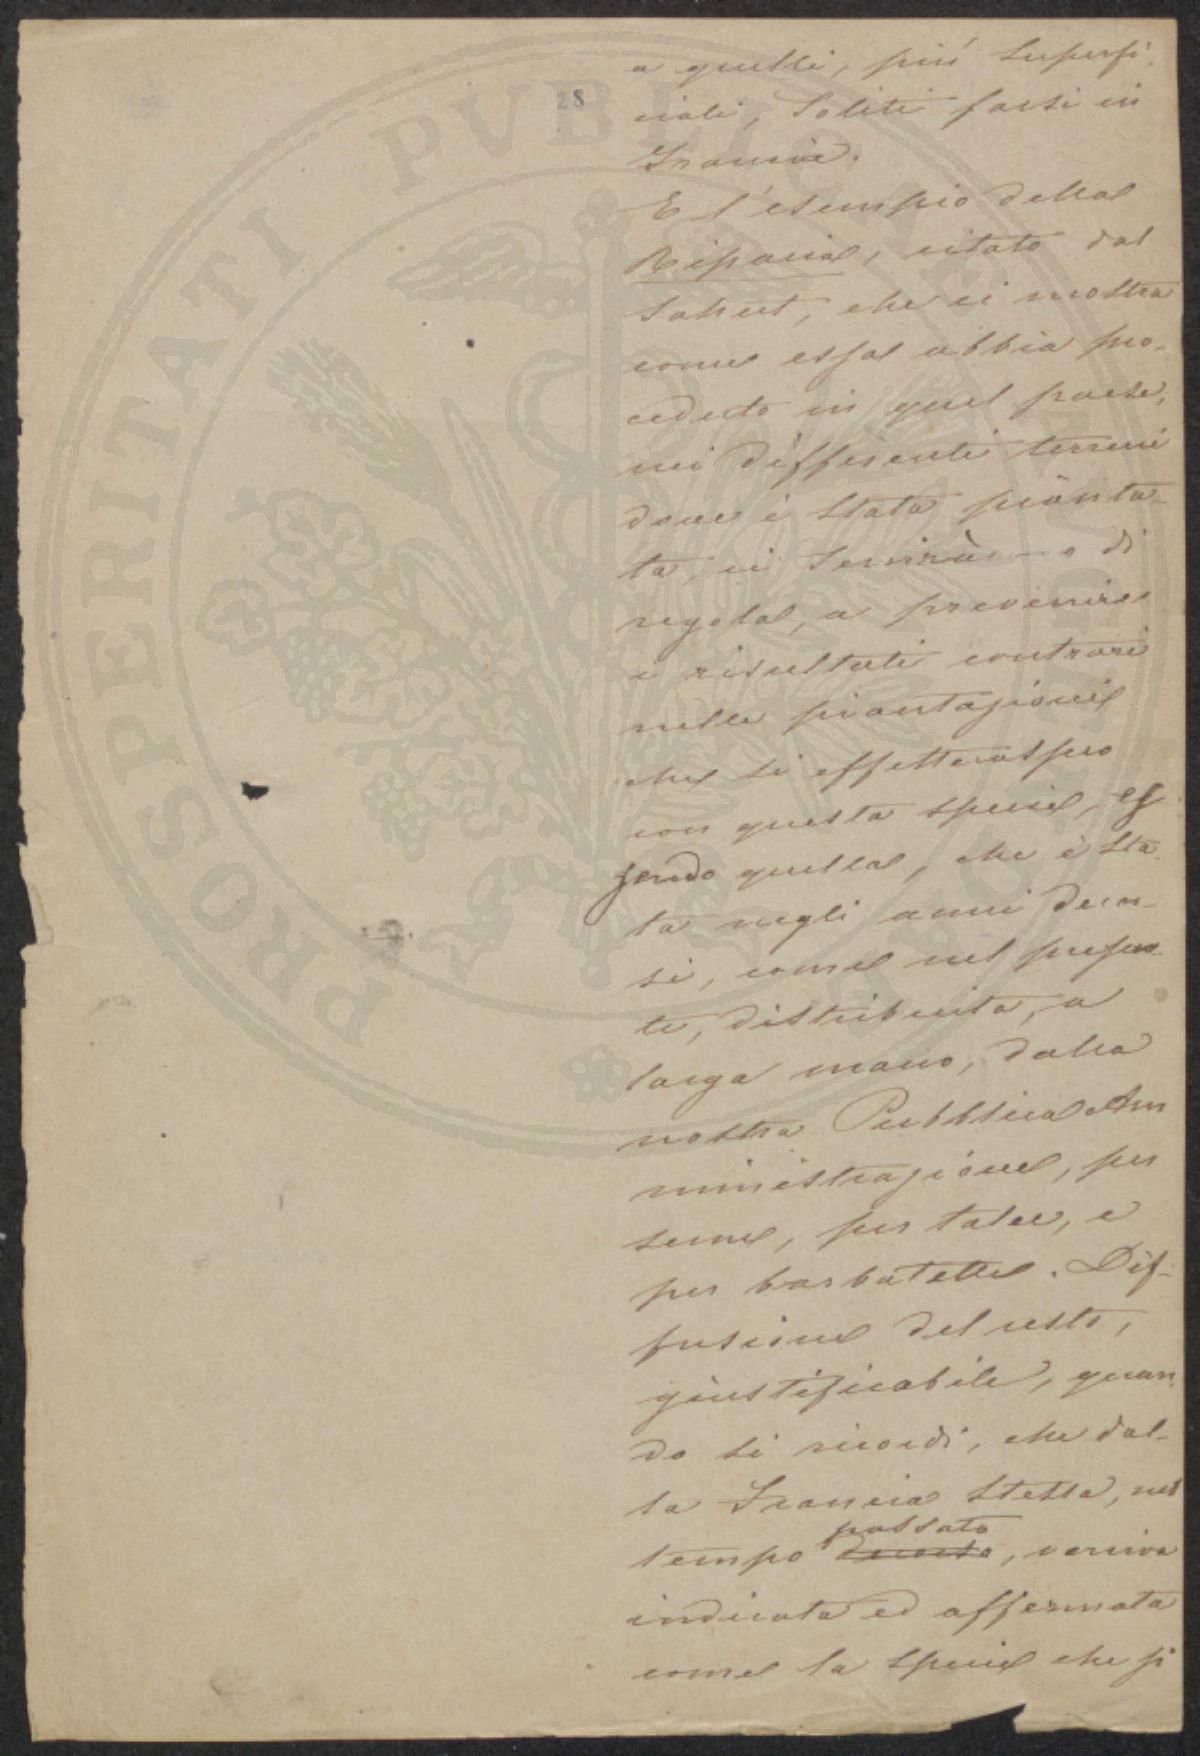 28
a quelli, più superfi-
ciali, soliti farsi in
Francia.
E l'esempio della
Riparia, citato dal
Sahut, che ci mostra
come essa abbia pro-
ceduto in quel paese,
nei differenti terreni
dove è stata pianta-
ta, ci servirà di
regola, a prevenire
i risultati contrari
nelle piantagioni
che si effettuassero
con questa specie, es
sendo quella, che è sta
ta negli anni decor-
si, come nel presen
te, distribuita, a
larga mano, dalla
nostra Pubblica Am
ministrazione, per
seme, per talee, e
per barbatelle. Dif-
fusione del resto,
giustificabile, quan
do si ricordi, che dal-
la Francia stessa, nel
passato
tempo decorso, veniva
indicata ed affermata
come la specie che si
PROSPERITATI PVBLICAE